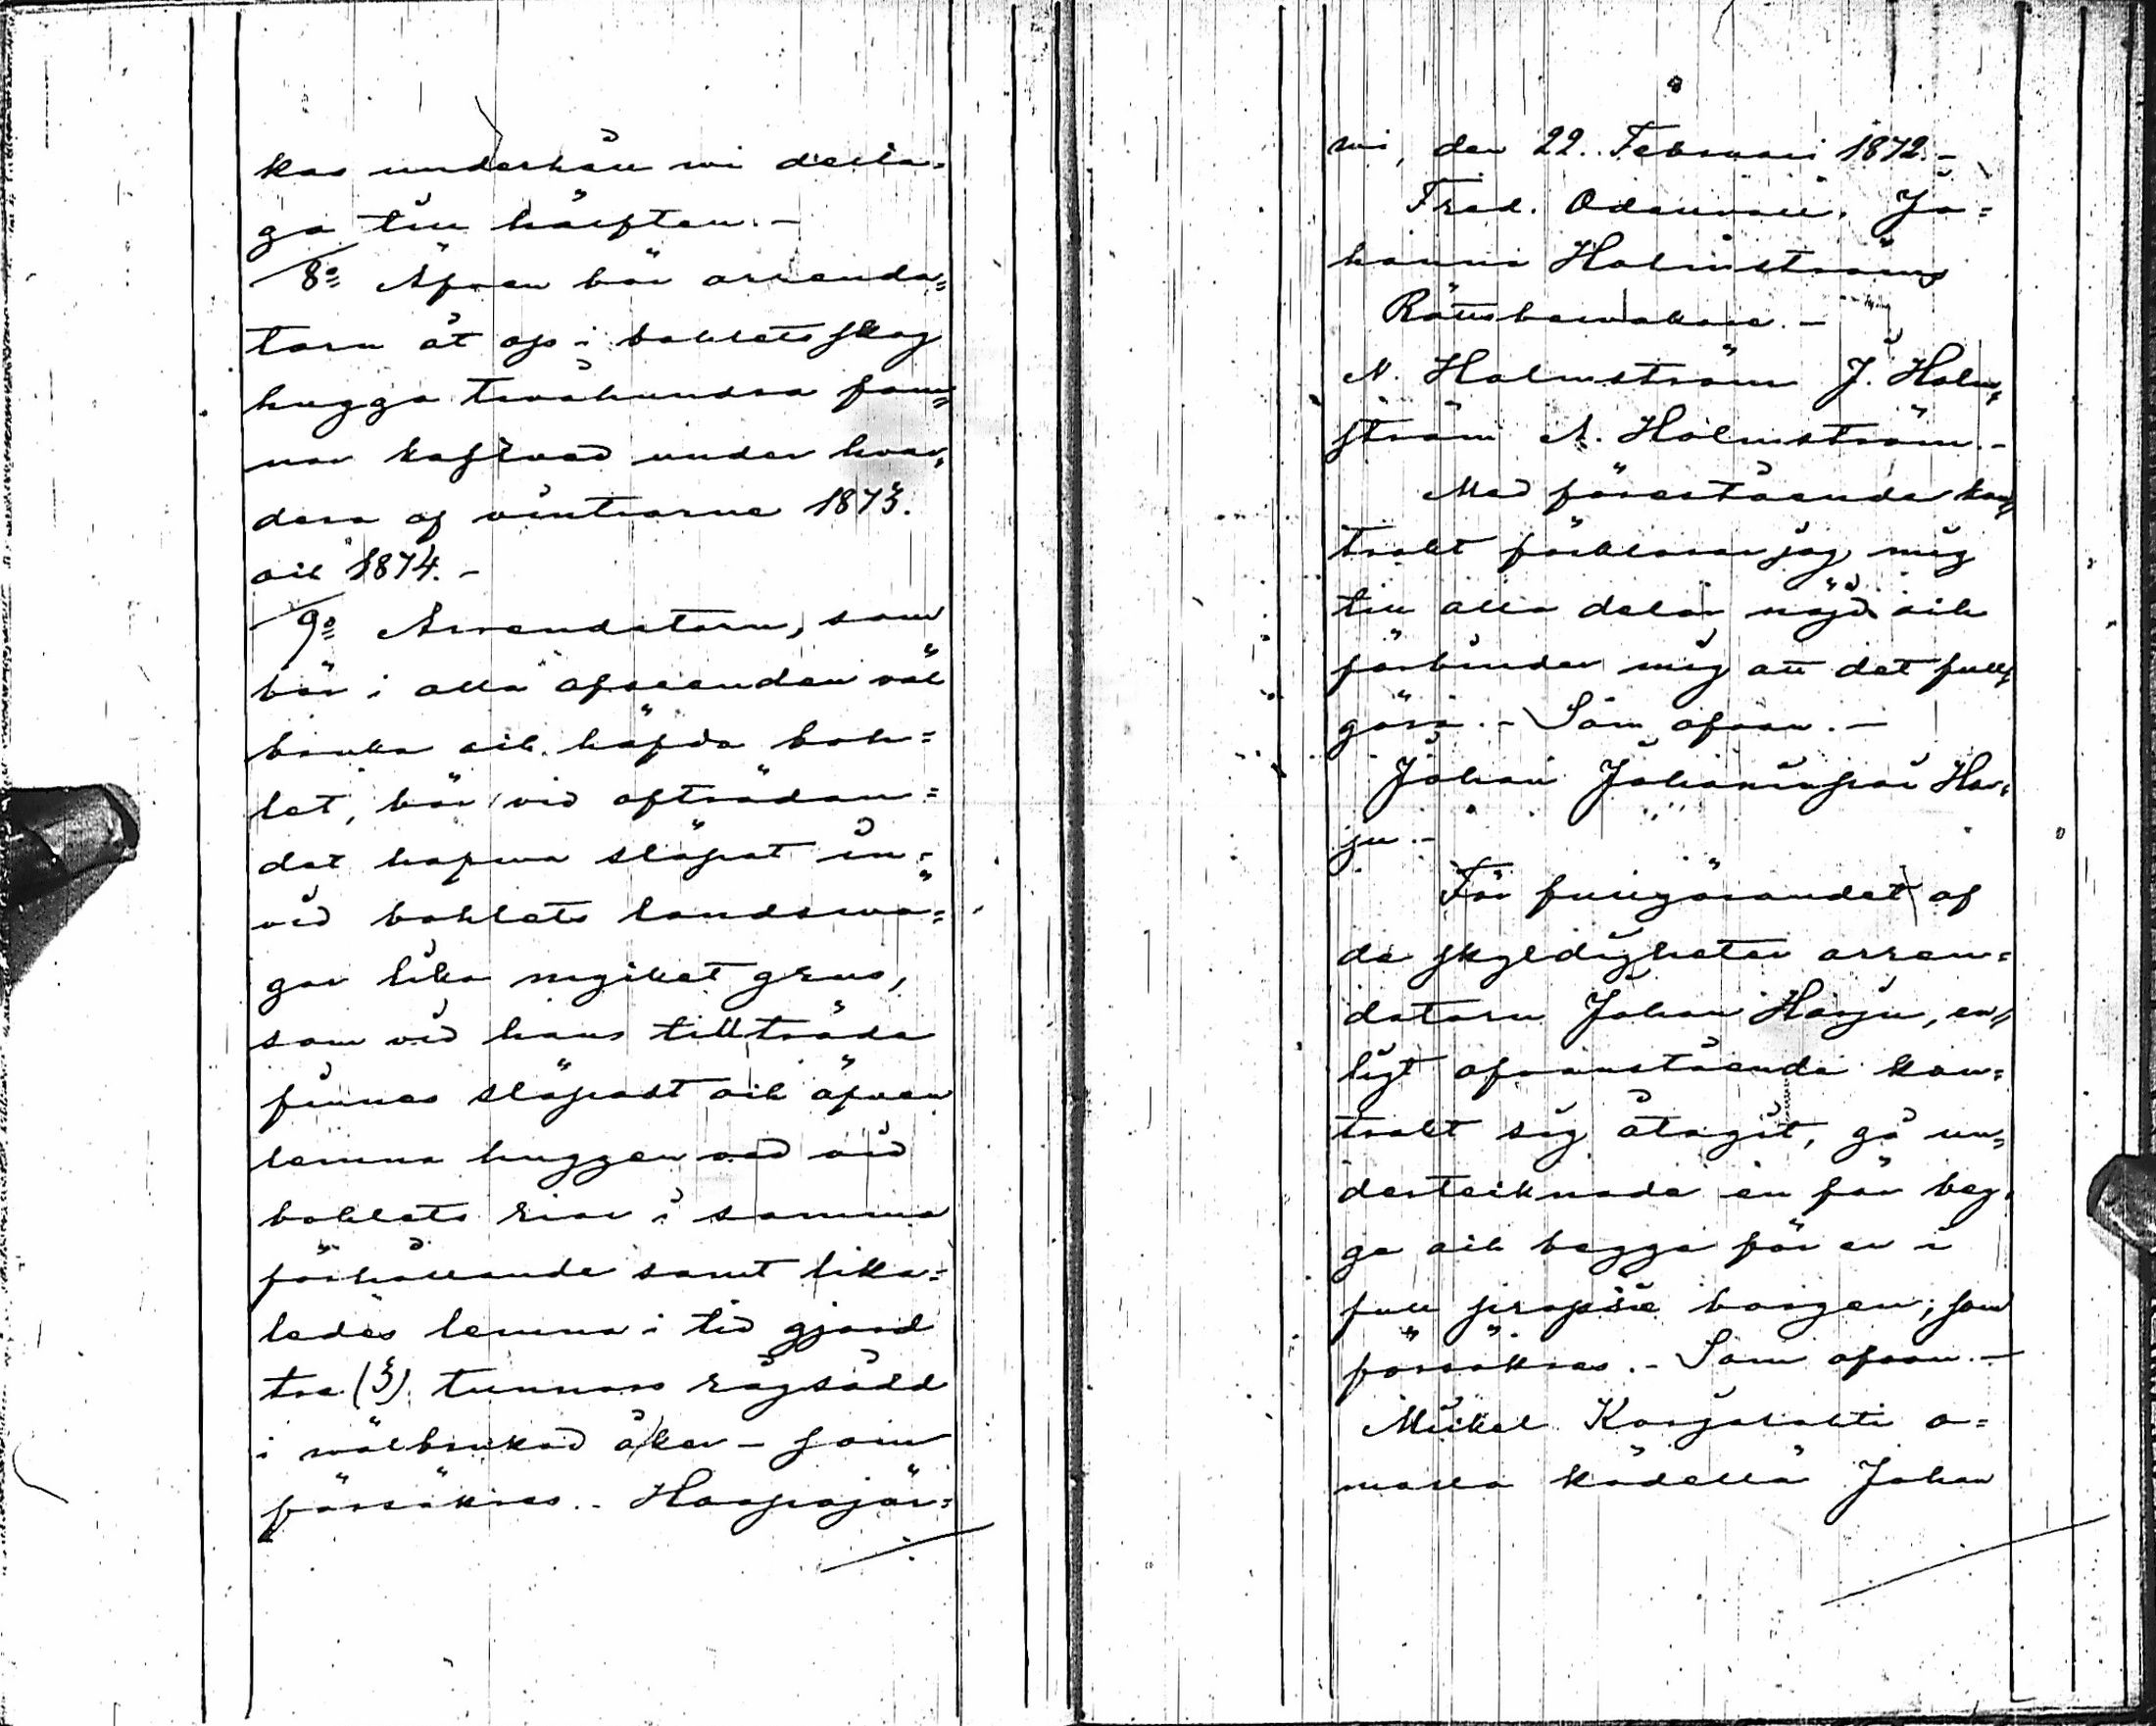 kas underhåll wi delta=
ga till hälften. -
8o Äfven bör arrenda=
torn åt oss i bohlets skog
hugga tvåhundra fam=
nar kastved under hvar=
dera af vintrarne 1873.
och 1874. -
9o Arrendatorn, som
bör i alla afseenden väl
bruka och häfda boh=
let, bör vid afträdan=
det hafva släpat in=
vid bohlets landsvä=
gar lika mycket grus,
som vid hans tillträde
finnes släpadt och äfven
lemna huggen ved vid
bohlets rior i samma
förhållande samt lika=
ledes lemna i tid gjord
tre (3) tunnors rågsådd
i wälbrukad åker - som
försäkras. - Haapajär=
wi, den 22. Februari 1872. -
Fred. Odenvall. Jo=
hanna Holmströms
Rättsbevakare. -
N. Holmström J. Holm=
ström A. Holmström. -
Med förestående kon=
trakt förklarar jag mig
till alla delar nöjd och
förbinder mig att det full=
göra. - Som ofvan. -
Johan Johansson Har=
ju. -
För fullgörandet af
de skyldigheter arren=
datorn Johan Harju, en=
ligt ofvanstående kon=
trakt sig åtagit, gå un=
dertecknade en för beg=
ge och begge för en i
full proprie borgen; som
försäkras. - Som ofvan. -
Mickel Karjalahti o=
malla kädellä Johan